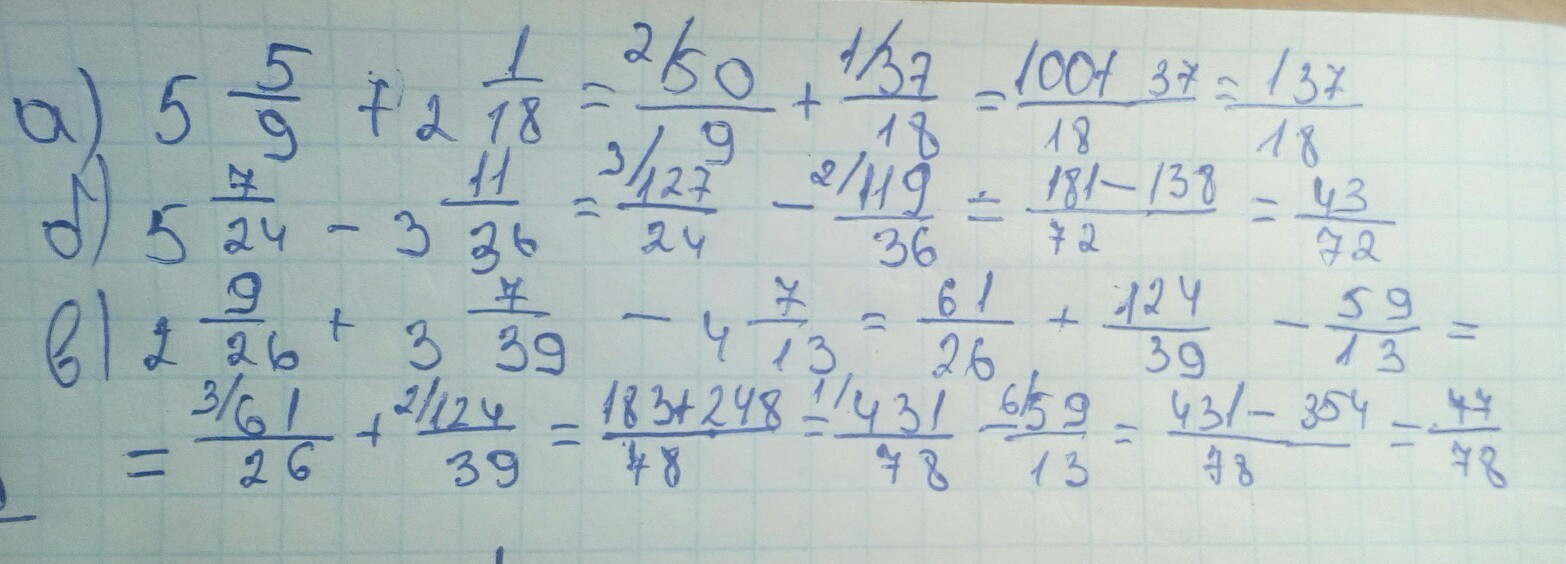 а) 5 5/9 + 2 1/18 = 2/50/9 + 1/37/18 = 100+37/18 = 137/18
б) 5 7/24 - 3 11/36 = 3/127/24 - 2/119/36 = 181-138/72 = 43/72
в) 2 9/26 + 3 7/39 - 4 7/13 = 61/26 + 124/39 - 59/13 =
= 3/61/26 + 2/124/39 = 183+248/78 = 1/431/78 - 6/59/13 = 431-354/78 = 77/78